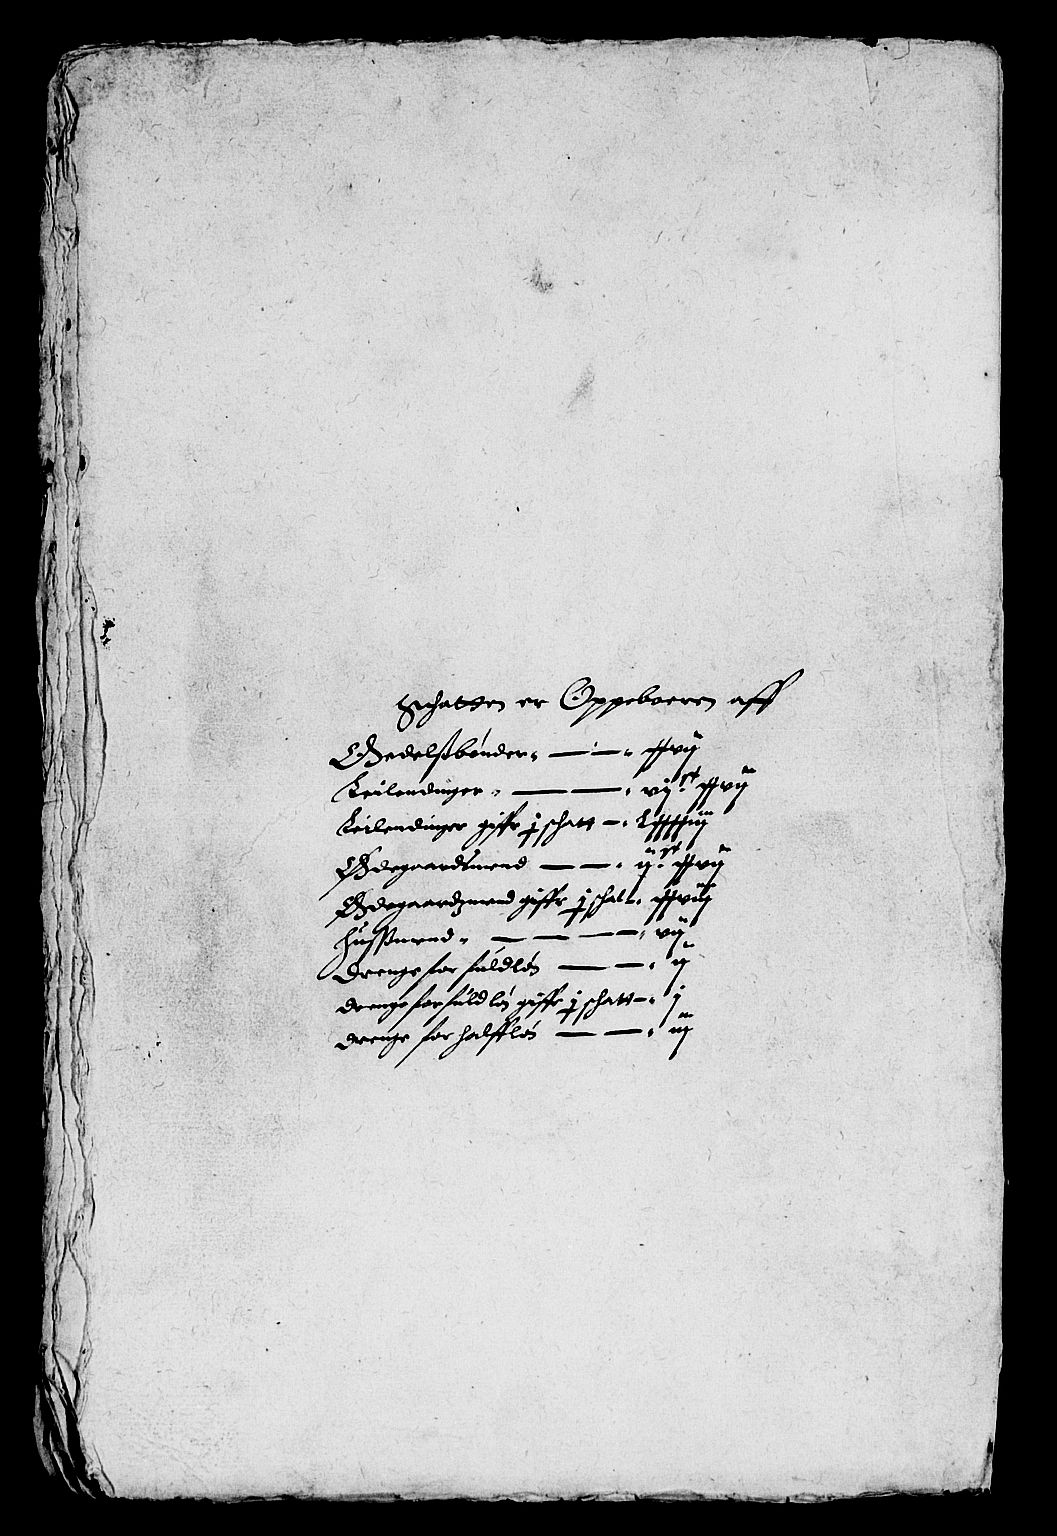 Schatten er Oppeboeren aff
Odelsbønder — — xxvij
Leilendinger — — vijᶜ xxvij
Leilendinger giffr j schatt — Lxxxxiiij
Ødegaardsmend — — ijᶜ xxvij
Ødegaardzmend giffr j schat — xxviij
Hussmend — — — vij
Drenge for fuldløn — — ij
drenge for fuld løn giffr j schatt — j
drenge for halffløn — — iij